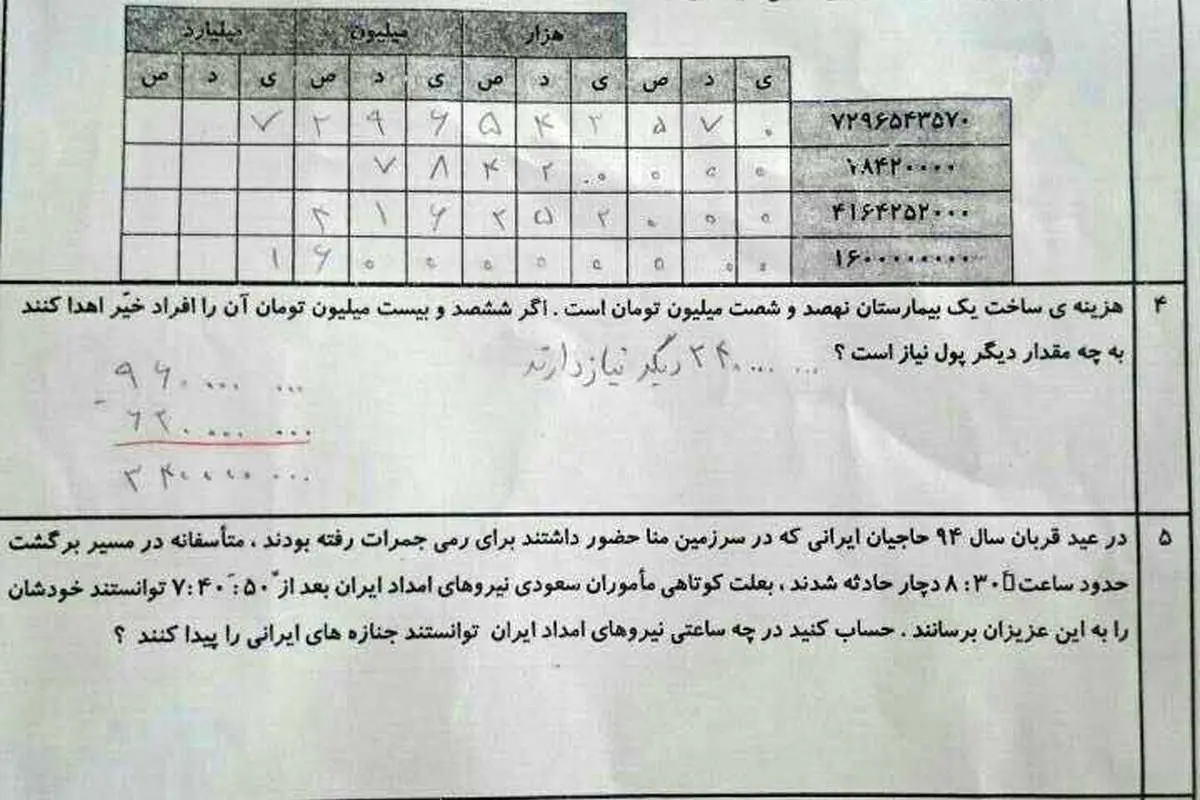 هزار میلیون میلیارد
ی د ص ی د ص ی د ص ی د ص
۷۲۹۶۵۴۳۵۷۰ ۷ ۲ ۹ ۶ ۵ ۴ ۳ ۵ ۷ ۰
۷۸۴۲۰۰۰۰ ۷ ۸ ۴ ۲ ۰ ۰ ۰ ۰
۴۱۶۴۲۵۲۰۰۰ ۴ ۱ ۶ ۲ ۵ ۲ ۰ ۰ ۰
۱ ۶ ۰ ۰ ۰ ۰ ۰ ۰ ۰ ۰
۴ هزینه ی ساخت یک بیمارستان نهصد و شصت میلیون تومان است . اگر ششصد و بیست میلیون تومان آن را افراد خیّر اهدا کنند
به چه مقدار دیگر پول نیاز است ؟ ۳۴۰۰۰۰ ۰۰۰ دیگر نیاز دارند
۹۶۰۰۰۰ ۰۰۰
-
۶۲۰۰۰۰ ۰۰۰
۳۴۰۰۰۰ ۰۰۰
۵ در عید قربان سال ۹۴ حاجیان ایرانی که در سرزمین منا حضور داشتند برای رمی جمرات رفته بودند ، متأسفانه در مسیر برگشت
حدود ساعت ۸:۳۰ دچار حادثه شدند ، بعلت کوتاهی مأموران سعودی نیروهای امداد ایران بعد از ۷:۴۰:۵۰ توانستند خودشان
را به این عزیزان برسانند . حساب کنید در چه ساعتی نیروهای امداد ایران توانستند جنازه های ایرانی را پیدا کنند ؟